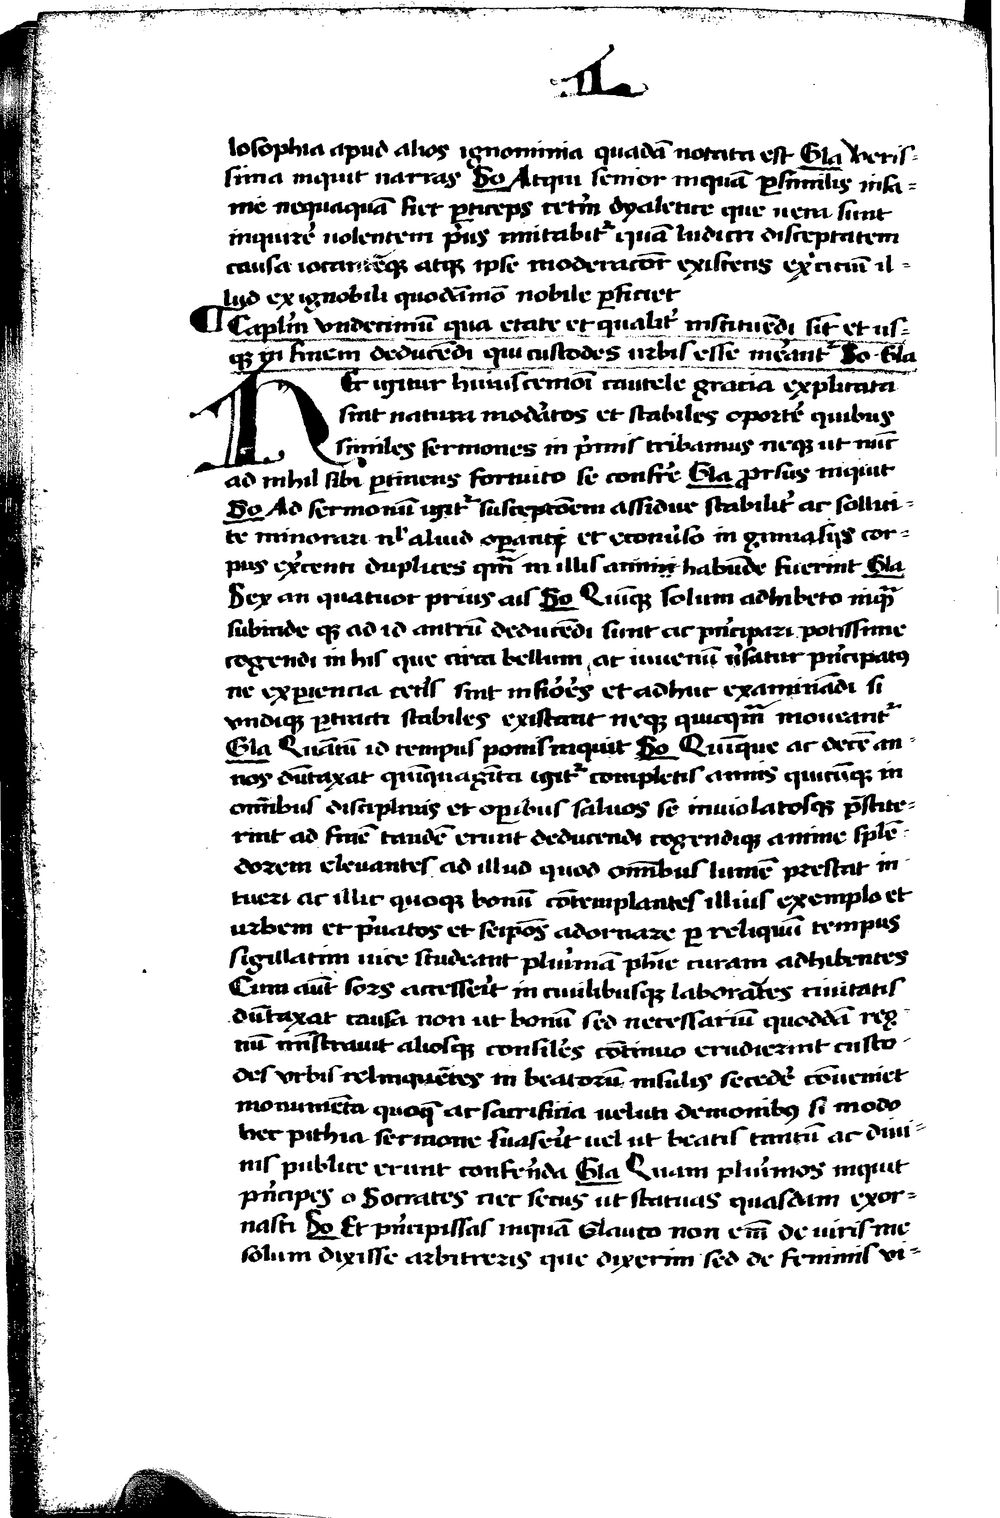 L
losophia apud alios ignominia quadā notata est Gla Veris-
sima inquit narras So Atqui senior inquā ꝑsimilis infa-
mie nequaquā fiet ꝑticeps cetm̄ dyaletice que uera sunt
inquirē uolentem pius imitabitᷣ quā ludicri disceptatem
causa iocantēqꝫ atqꝫ ipse moderacior existens exercicium il-
lud ex ignobili quodāmō nobile ꝑficiet
¶ Caplm̄ vndecimū qua etate et qualitᷣ instituēdi sīt et us-
qꝫ in finem deducēdi qui custodes urbis esse merāntᷣ So Gla
REt igitur huiuscemōi cautele gracia explicata
sint natura modatos et stabiles oportē quibus
similes sermones in pimis tribamus neqꝫ ut nūc
ad nihil sibi ꝑtinens fortuito se confrē Gla ꝓrsus inquit
So Ad sermonū igitᷣ susceptōem assidue stabilitᷣ ac sollici-
te minorari nl̄ aliud oꝑanti et econuso in gimnasijs cor-
pus exercenti duplices qm̄ in illis annini habūde fuerint Gla
Sex an quatuor prius ais So Quīqꝫ solum adhibeto inqᷓ
subinde qꝫ ad id antrū deducēdi sunt ac pncipari potissime
cogendi in his que circa bellum ac iuuenū usatur pncipatꝰ
ne exꝑiencia ceteris sint inferiores et adhuc examinādi si
vndiqꝫ ꝑtracti stabiles existant neqꝫ quicqm̄ moueantᷣ
Gla Quātū id tempus ponis inquit So Quinque ac decē an-
nos dūtaxat quīquagīta igitᷣ completis annis quicūqꝫ in
omībus disciplinis et oꝑibus saluos se inuiolatosqꝫ p̄stite-
rint ad finē tandē erunt deducendi cogendiqꝫ anime splē-
dorem eleuantes ad illud quod omībus lumē prestat in
tueri ac illic quoqꝫ bonū cōtemplantes illius exemplo et
urbem et puatos et seipōs adornare ꝑ reliquū tempus
sigillatim uice studeant plurimā phie curam adhibentes
Cum aūt sors accesseīt in ciuilibusqꝫ laborātes ciuitatis
dūtaxat causa non ut bonū sed necessariū quoddā reg
nū mīstrauit aliosqꝫ consilēs cōtinuo erudierint custo-
des vrbis relinquētes in beatorū insulis secedē cōueniet
monumēta quoqꝫ ac sacrificia ueluti demonibꝰ si modo
hec pithia sermone suaseīt uel ut beatis tantū ac diui-
nis publice erunt conferēnda Gla Quam plurimos inquit
pncipes o Socrates nec secus ut statuas quasdam exor-
nasti So Et pncipissas inquā Glauco non eīm de uiris me
solum dixisse arbitreris que dixerim sed de feminis vi-